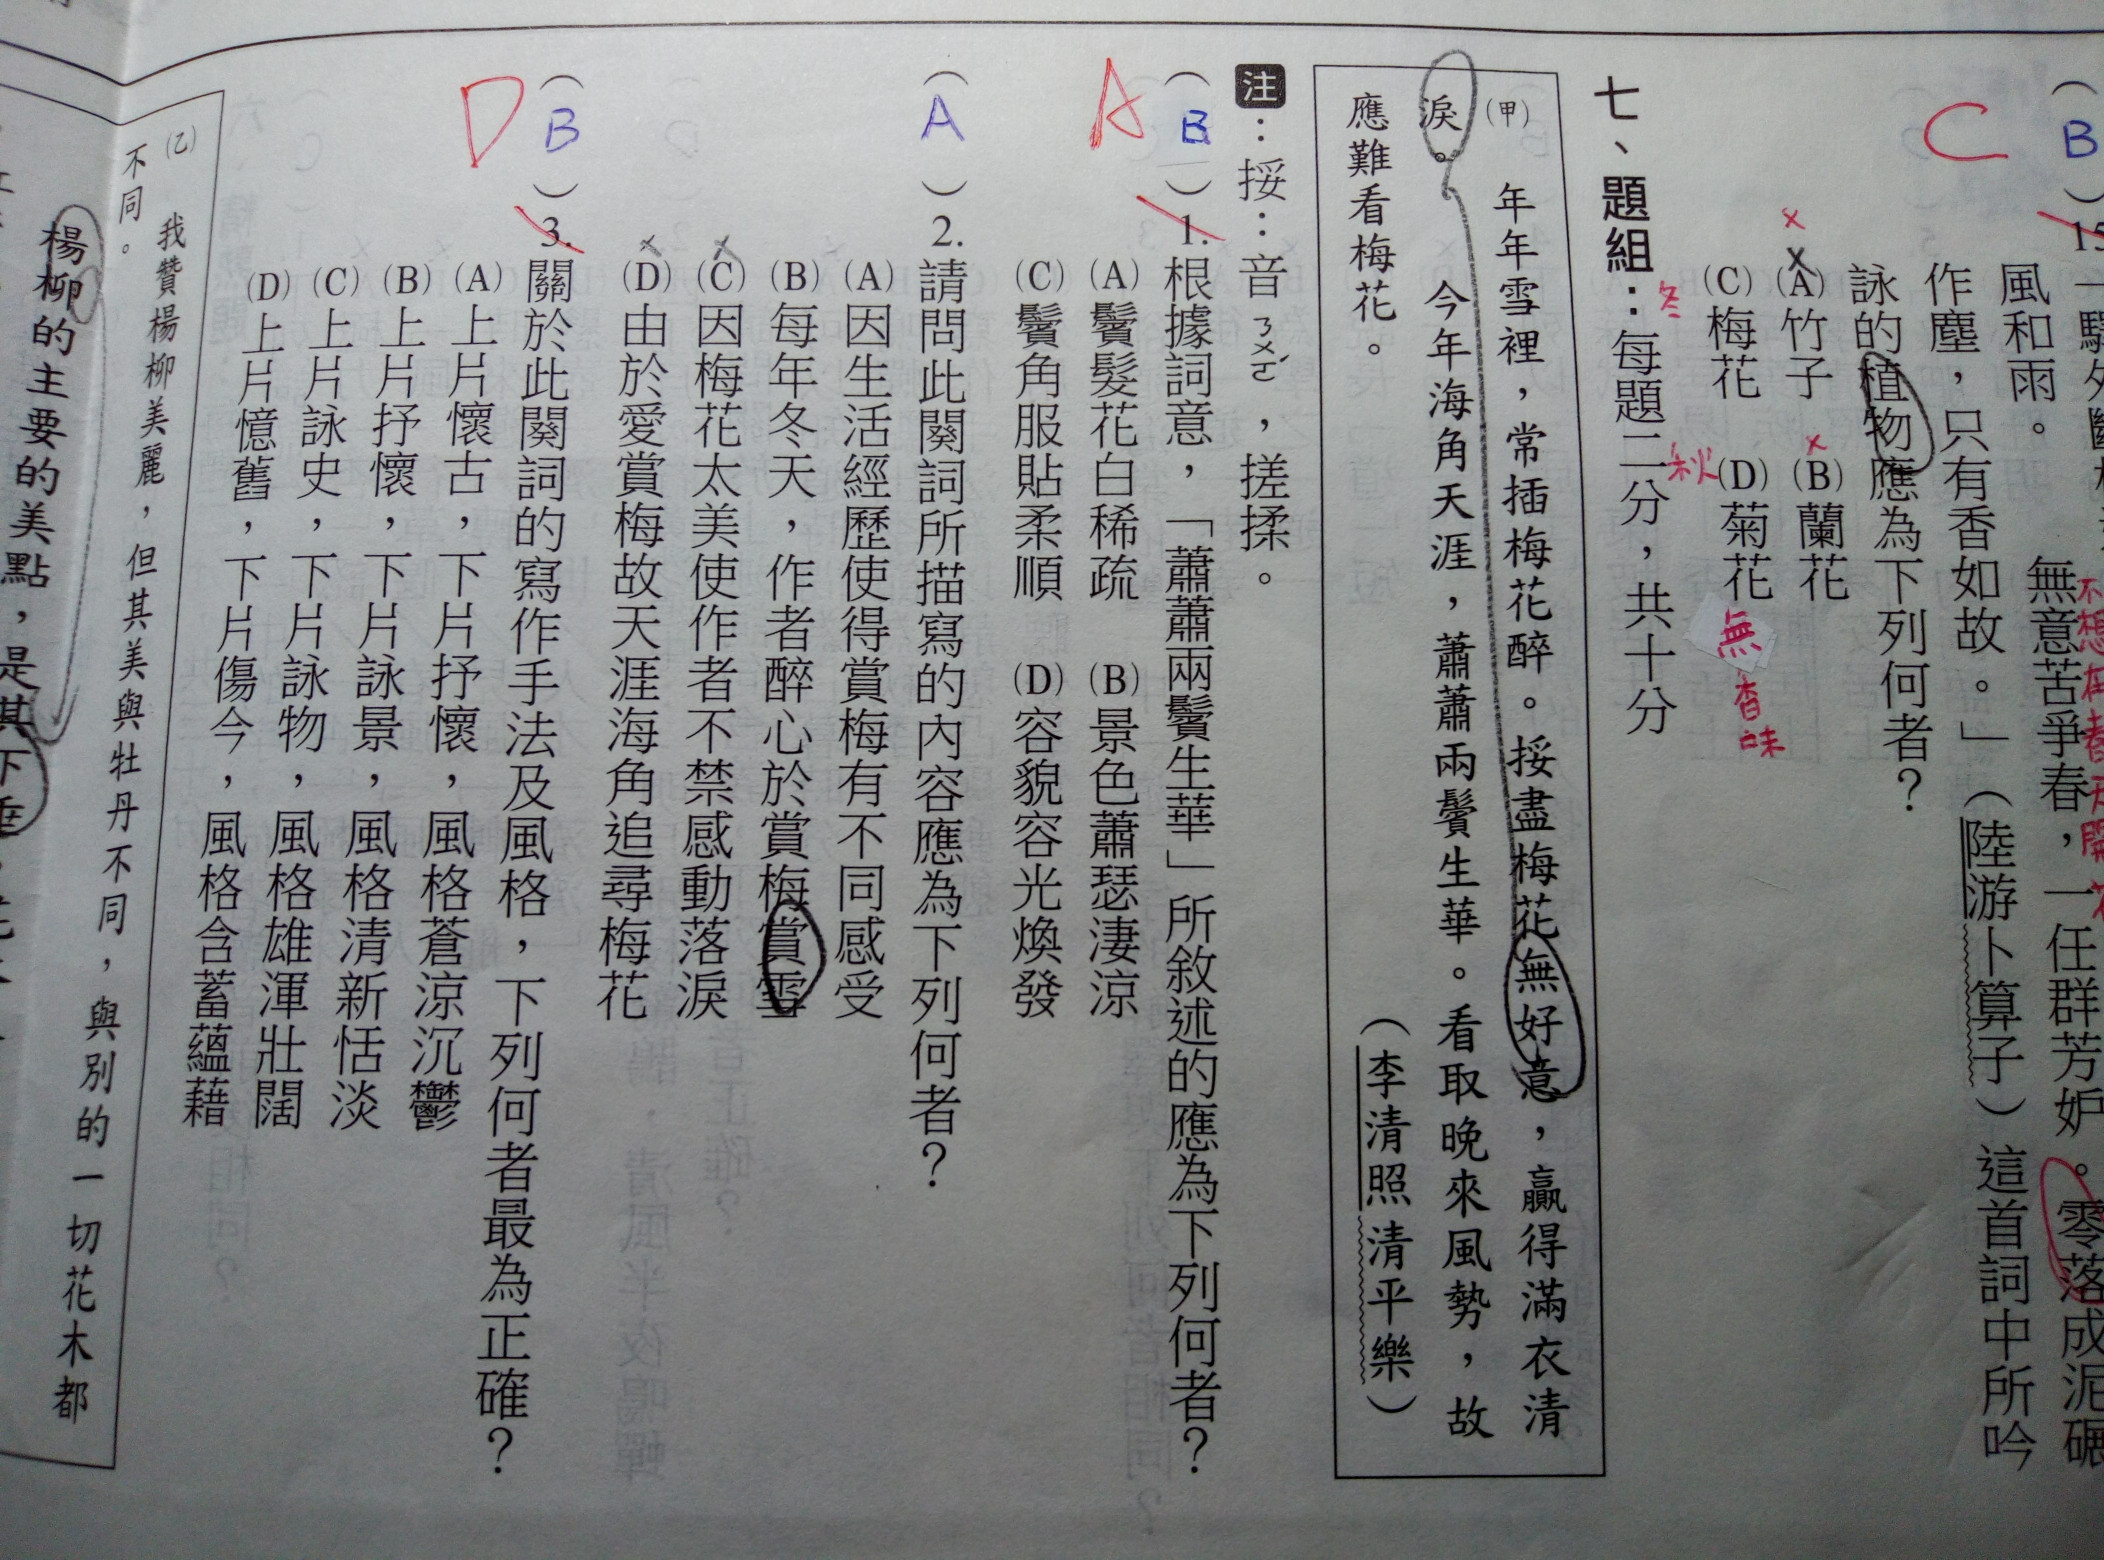 (B)15.
風和雨。 無意苦爭春,一任群芳妒。零落成泥碾
作塵,只有香如故。」(陸游卜算子)這首詞中所吟
詠的植物應為下列何者?
(A)竹子 (B)蘭花
(C)梅花 (D)菊花
C
不想在春天開花
冬
秋
無
香味
七、題組:每題二分,共十分
(甲) 年年雪裡,常插梅花醉。挼盡梅花無好意,贏得滿衣清
淚。 今年海角天涯,蕭蕭兩鬢生華。看取晚來風勢,故
應難看梅花。 (李清照清平樂)
注:挼:音ㄋㄨㄛˊ,搓揉。
(B)1.根據詞意,「蕭蕭兩鬢生華」所敘述的應為下列何者?
A
(A)鬢髮花白稀疏 (B)景色蕭瑟淒涼
(C)鬢角服貼柔順 (D)容貌容光煥發
(A)2.請問此闋詞所描寫的內容應為下列何者?
(A)因生活經歷使得賞梅有不同感受
(B)每年冬天,作者醉心於賞梅賞雪
(C)因梅花太美使作者不禁感動落淚
(D)由於愛賞梅故天涯海角追尋梅花
(B)3.關於此闋詞的寫作手法及風格,下列何者最為正確?
D
(A)上片懷古,下片抒懷,風格蒼涼沉鬱
(B)上片抒懷,下片詠景,風格清新恬淡
(C)上片詠史,下片詠物,風格雄渾壯闊
(D)上片憶舊,下片傷今,風格含蓄蘊藉
(乙) 我贊楊柳美麗,但其美與牡丹不同,與別的一切花木都
不同。
楊柳的主要的美點,是其下垂